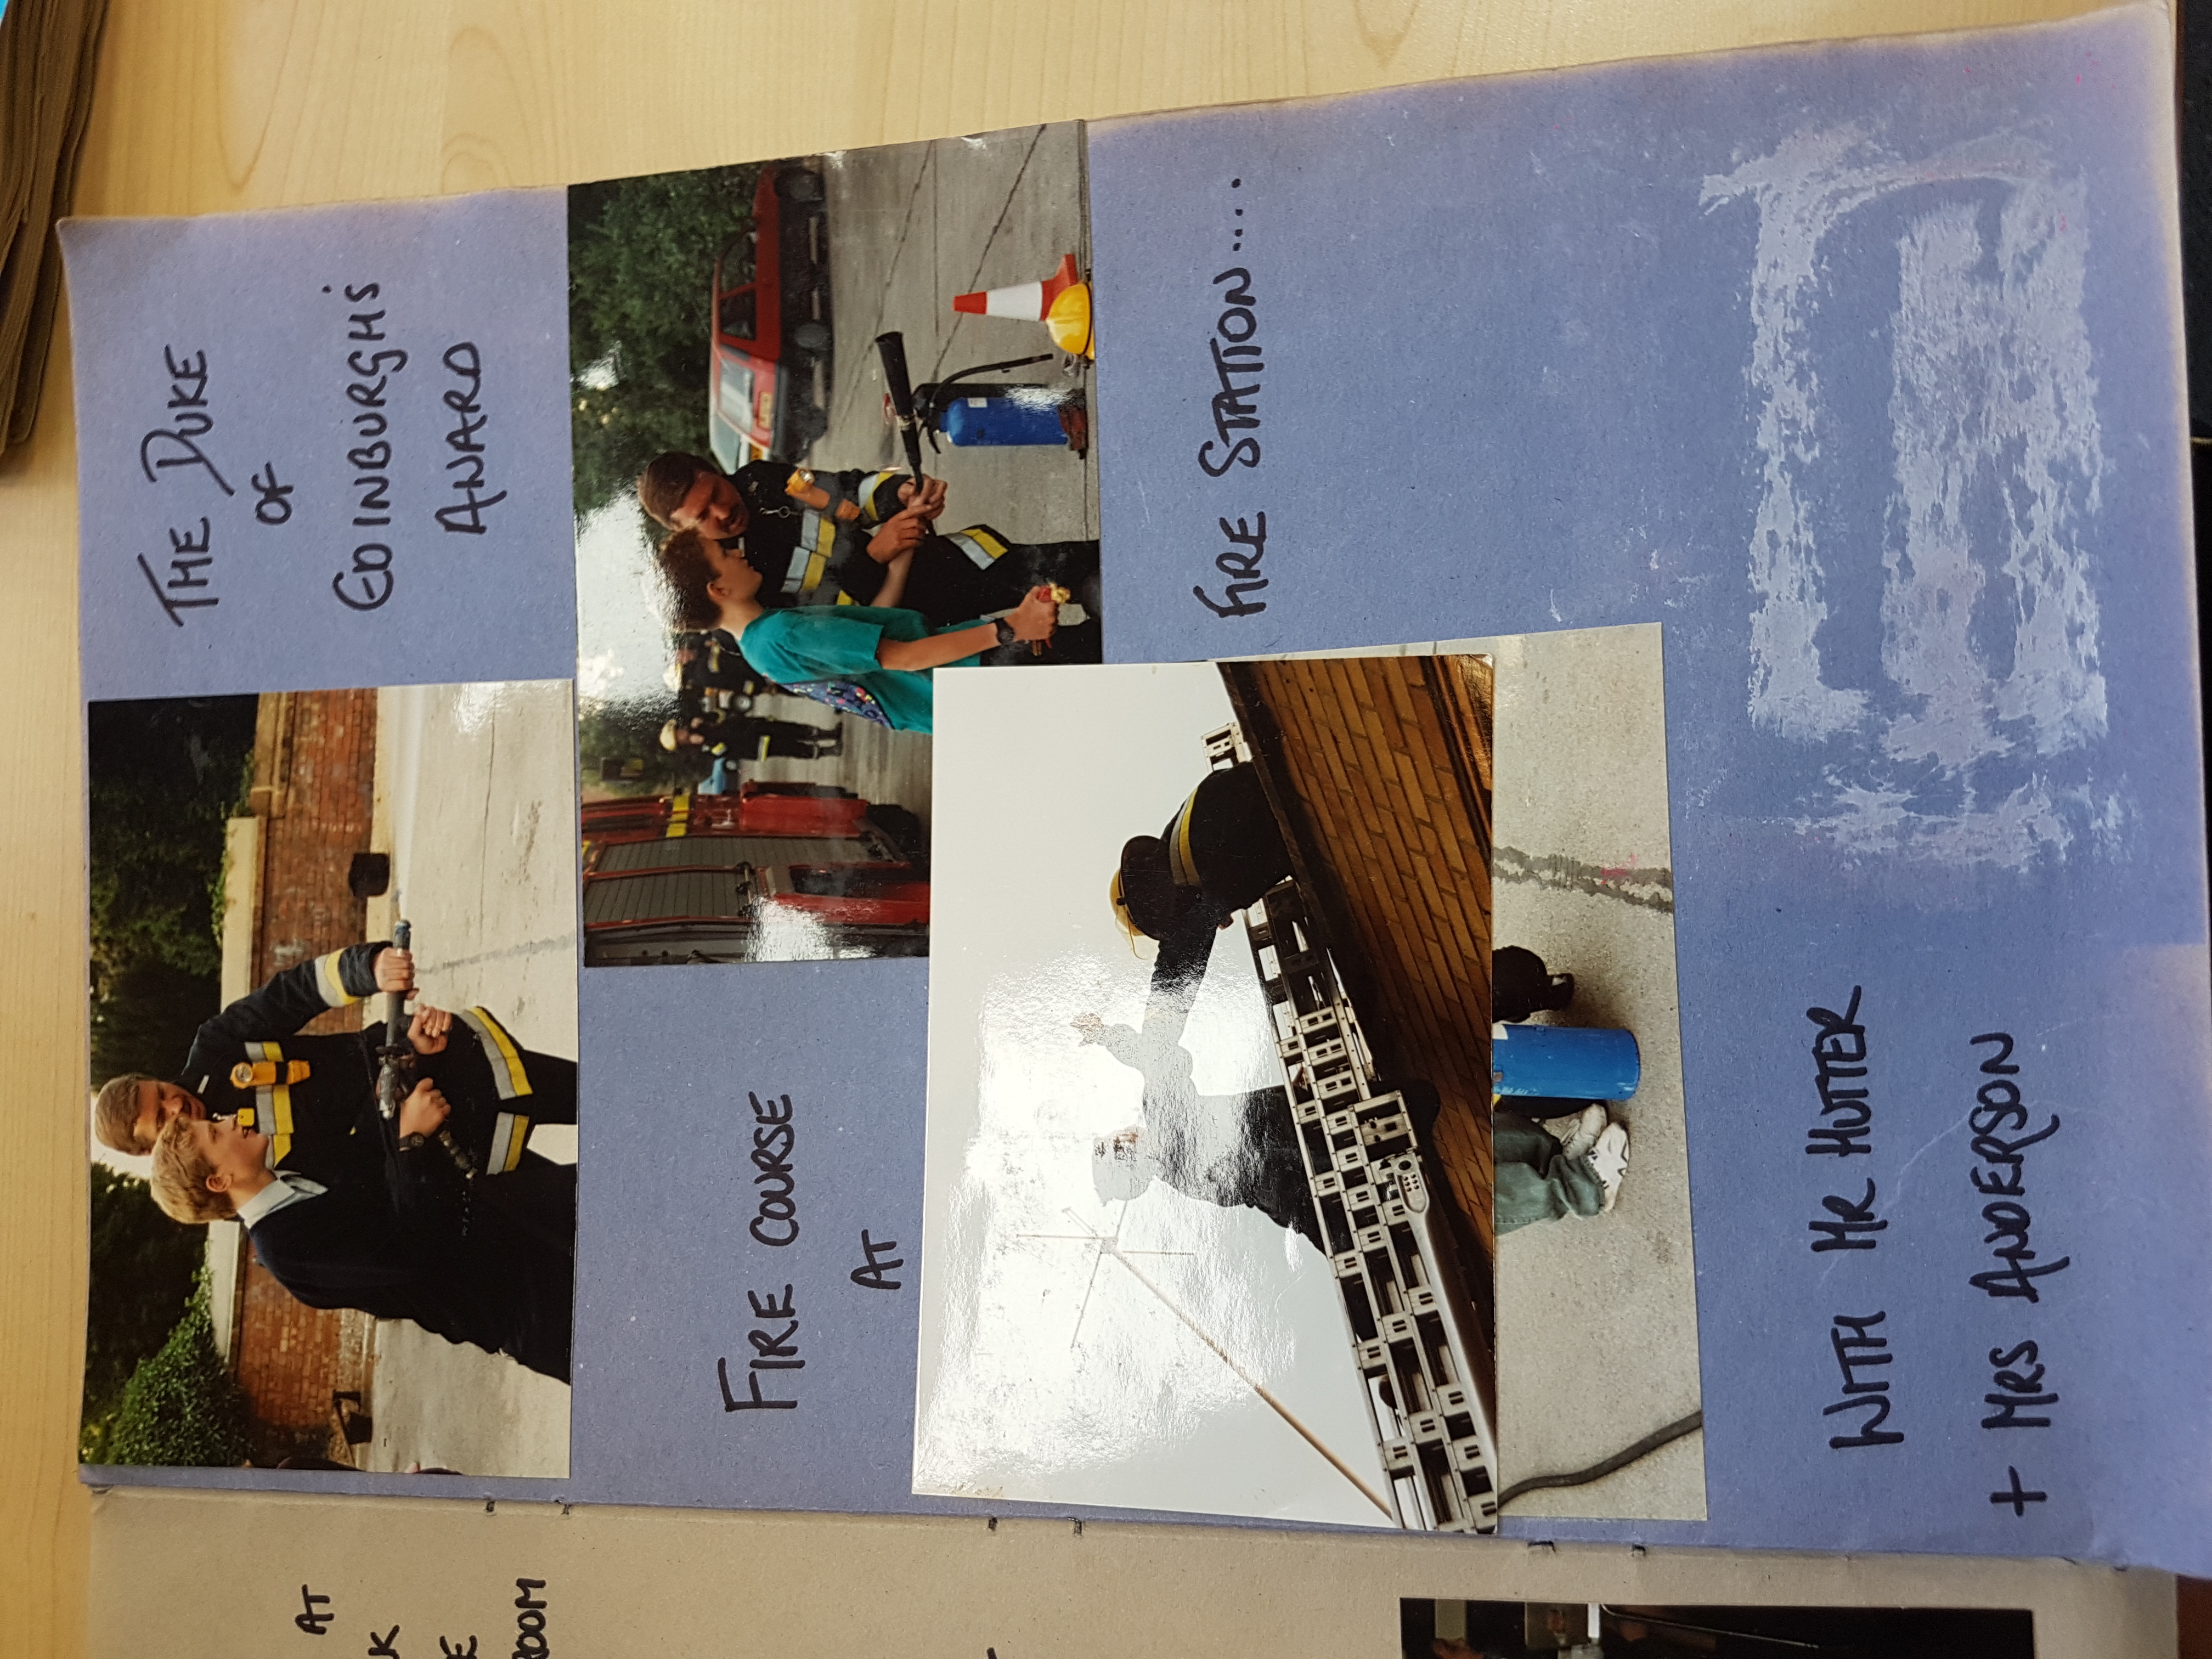 AT
K
E
ROOM
THE DUKE
OF
EDINBURGH'S
AWARD
FIRE COURSE
AT
FIRE STATION....
WITH MR HUTTER
+ MRS ANDERSON